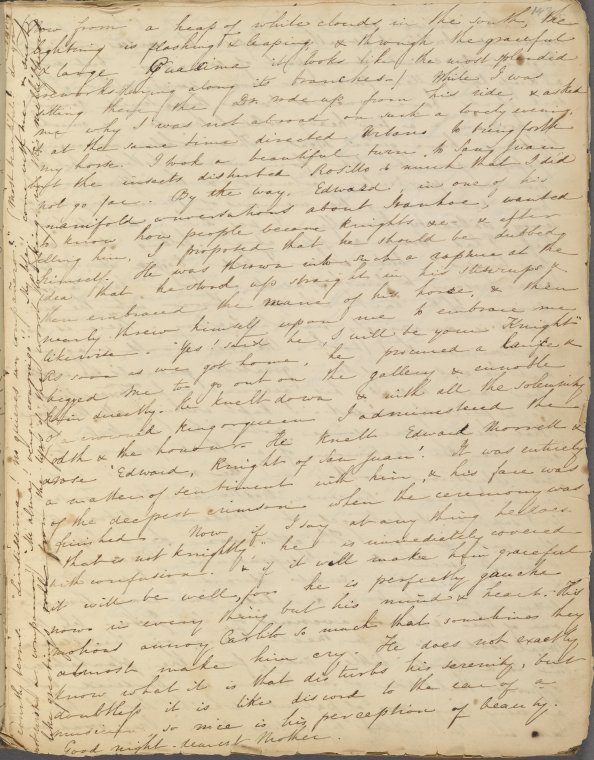 now from a heap of white clouds in the south, the
lightning is flashing & leaping & through the graceful
& large Guacima it (looks like the most splendid
fireworks flaring along its branches.) While I was
sitting there the Dr. rode up from his ride, & asked
me why I was not abroad on such a lovely evening
& at the same time directed Urbano to bring forth
my horse. I took a beautiful turn to San Juan
but the insects disturbed Rosillo so much that I did
not go far. By the way, Edward, in one of his
manifold conversations about Ivanhoe, wanted
to know how people became Knights &c. & after
telling him, I proposed that he should be dubbed
himself. He was thrown into such a rapture at the
idea that he stood up straight in his stirrups &
then embraced the mane of his horse, & then
nearly threw himself upon me to embrace me
likewise. "Yes! said he, I will be your Knight"
As soon as we got home, he procured a lance &
begged me to go out on the gallery & ennoble
him directly. He knelt down & with all the solemnity
of a crowned King or queen I administered the
oath & the honour. He knelt Edward Morrell &
arose "Edward, Knight of San Juan! It was entirely
a matter of sentiment with him, & his face was
of the deepest crimson when the ceremony was
finished. Now if I say at any thing he does
"that is not knightly" he is immediately covered
with confusion. & if it will make him graceful
it will be well, for he is perfectly gauche
now in every thing but his mind & heart. His
motions annoy Carlito so much that sometimes they
almost make him cry. He does not exactly
know what it is that disturbs his serenity, but
doubtless it is like discord to the ear of a
musician so nice is his perception of beauty.
Good night dearest Mother.